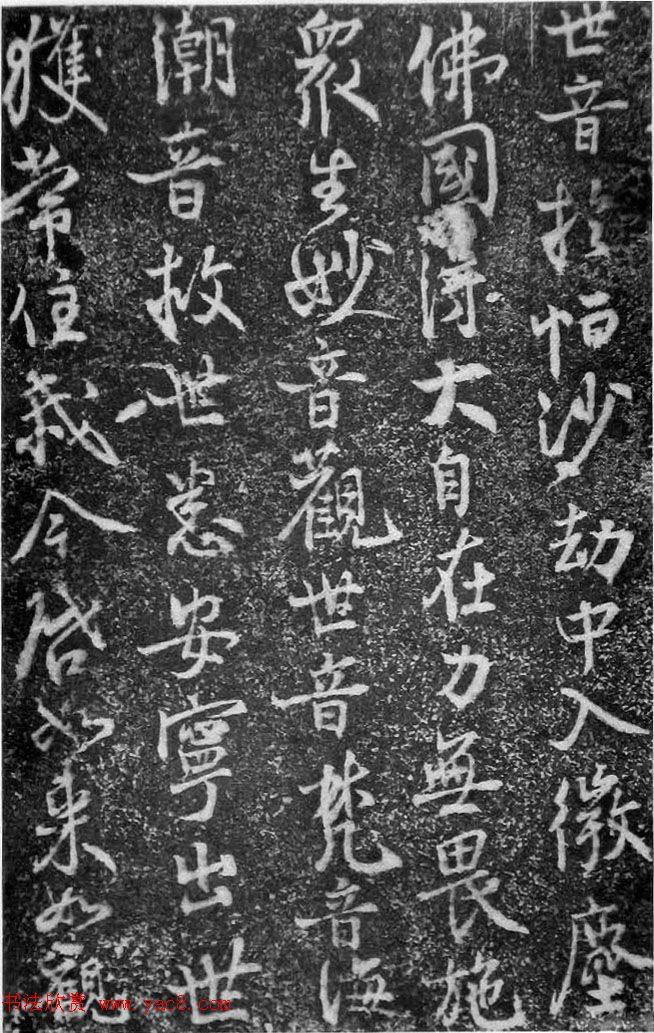 世音於恒沙劫中入微塵
佛國得大自在力無畏施
衆生妙音觀世音梵音海
潮音救世悉安寧出世
獲常住我今啓如来如觀
书法欣赏 www.yac8.com